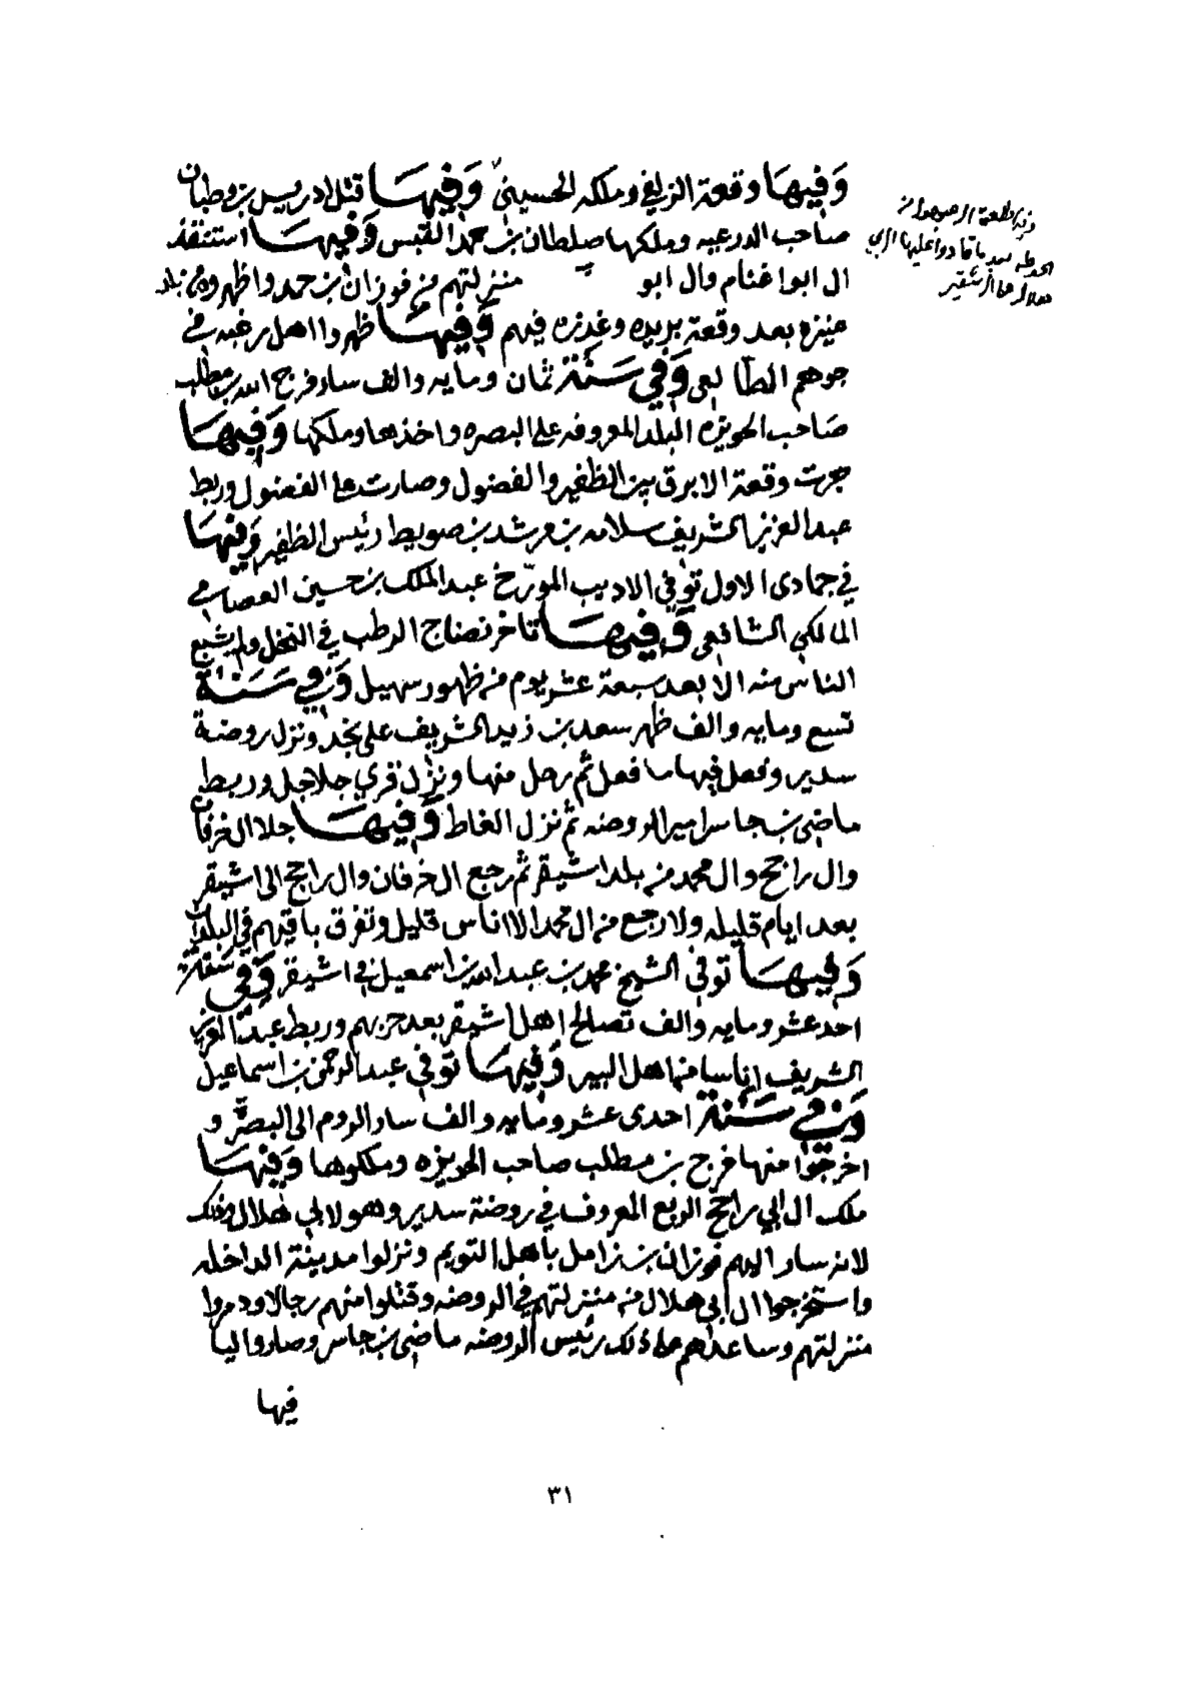 وَفيهَا وقعة الزلفي وملكه الحسيني وَفيهَا قتل ادريس بن وطبان
صاحب الدرعيه وملكها صلطان بن حمد القبس وَفيهَا استنقذ
ال ابوا غنام وال ابو منزلتهم من فوزان بن حمد واظهروه من بلد
عنيزه بعد وقعة بريده وغدره فيهم وَفيهَا ظهروا اهل رغبه في
جوهم الطالعي وَفي سَنَة ثمان ومايه والف سار فرج الله بن مطلب
صاحب الحويزه البلد المعروفه على البصره واخذها وملكها وَفيهَا
جرت وقعة الابرق بين الظفير والفضول وصارت على الفضول وربط
عبد العزيز الشريف سلامه بن مرشد بن صويط رئيس الظفير وَفيهَا
في جمادى الاول توفي الاديب المورّخ عبد الملك بن حسين العصامي
المالكي الشافعي وَفيهَا تاخر نضاج الرطب في النخل ولم يشبع
الناس منه الا بعد سبعة عشر يوم من ظهور سهيل وَفي سَنَة
تسع ومايه والف ظهر سعد بن زيد الشريف على نجد ونزل روضة
سدير وفعل فيها ما فعل ثم رحل منها ونزل قري جلاجل وربط
ماضي بن جاسر امير الروضه ثم نزل الغاط وَفيهَا جلا ال خرفان
وال راجح وال محمد من بلد اشيقر ثم رجع ال خرفان وال راجح الى اشيقر
بعد ايام قليله ولا رجع من ال محمد الا اناس قليل وتفرق باقيهم في البلدان
وَفيهَا توفي الشيخ محمد بن عبد الله بن اسمعيل في اشيقر وَفي سَنَة
احد عشر ومايه والف تصالح اهل اشيقر بعد حربهم وربط عبد العزيز
الشريف اناسا من اهل البير وَفيهَا توفي عبد الرحمن بن اسماعيل
وَفي سَنَة احدى عشر ومايه والف سار الروم الى البصرة و
اخرجوا منها فرج بن مطلب صاحب الحويزه وملكوها وَفيهَا
ملك ال ابي راجح الربع المعروف في روضة سدير وهو لابي هلال وذلك
لانه سار اليهم فوزان بن زامل باهل التويم ونزلوا مدينة الداخله
واستخرجوا ال ابي هلال من منزلتهم في الروضه وقتلوا منهم رجالا ودمروا
منزلتهم وساعدهم على ذلك رئيس الروضه ماضي بن جاسر وصاروا ليا
فيها
٣١